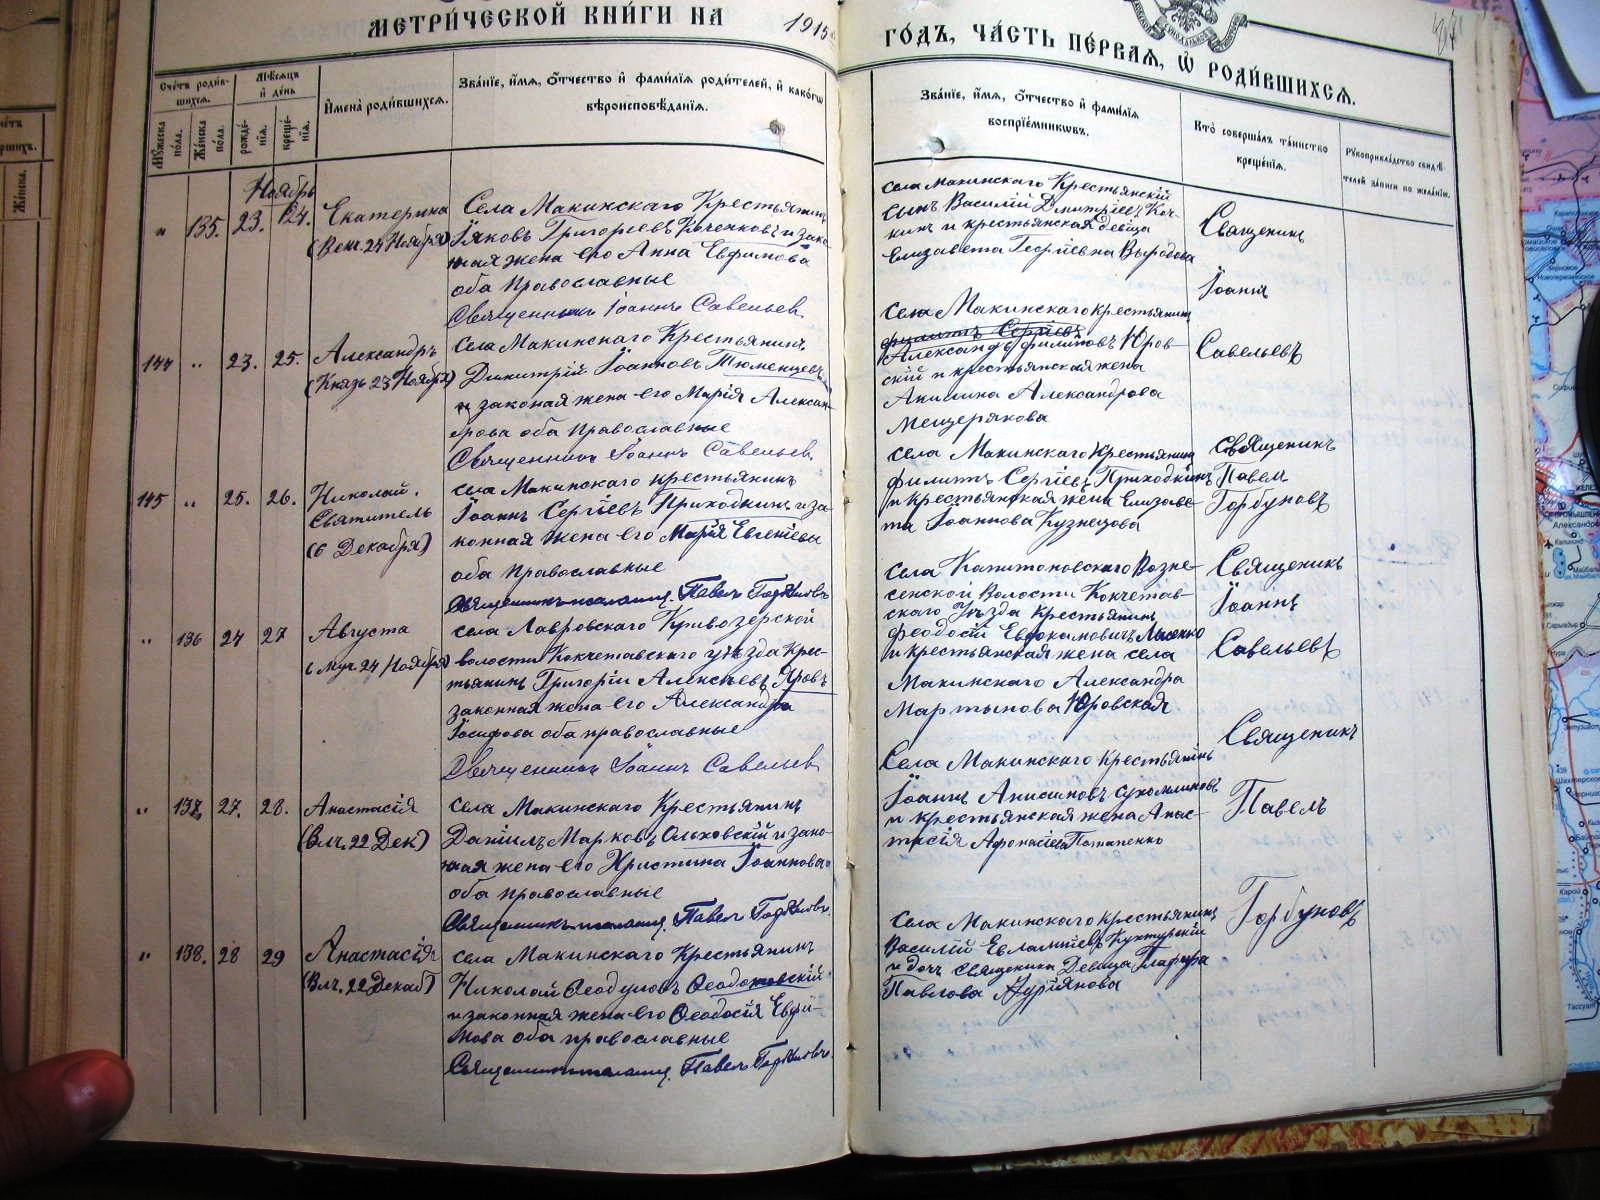 МЕТРИЧЕСКОЙ КНИГИ НА 1915
ГОДЪ, ЧАСТЬ ПЕРВАЯ, Ѡ РОДИВШИХСЯ.
Счетъ родив-
шихся.
Мѣсяцъ
и день
Мужеска
пола.
Женска
пола.
рожде-
нія.
креще-
нія.
Имена родившихся.
Званіе, имя, отчество и фамилія родителей, и какого
вѣроисповѣданія.
Званіе, имя, отчество и фамилія
воспріемниковъ.
Кто совершалъ таинство
крещенія.
Рукоприкладство свидѣ-
телей записи по желанію.
Ноябрь
" 135. 23. 24. Екатерина
(Вел. 24 Ноября)
Села Макинскаго Крестьянинъ
Іяковъ Григорьевъ Коченковъ и зако-
ная жена его Анна Евфимова
оба Православные
Священникъ Іоаннъ Савельев
Села Макинскаго Крестьянскій
сынъ Василій Дмитріевъ Коч-
кинъ и крестьянская девица
Елизавета Георгіевна Выродова
Священикъ
Іоаннъ
Савельевъ
144 " 23. 25. Александръ
(Князь 23 Ноября)
Села Макинскаго Крестьянинъ
Димитрій Іоанновъ Тюменцевъ
и законая жена его Марія Алексан-
дрова оба Православные
Священникъ Іоаннъ Савельев.
Села Макинскаго крестьянинъ
Филиппъ Сергіевъ
Александъ Филиповъ Юров-
скій и крестьянская жена
Акилина Александрова
Мещерякова
145 " 25. 26. Николай.
Святитель
(6 Декабря)
Села Макинскаго крестьянинъ
Іоаннъ Сергіевъ Приходкинъ и за-
конная жена его Марія Евгеніевы
оба Православные
Павелъ Горбуновъ
села Макинскаго Крестьянинъ
Филипъ Сергіевъ Приходкинъ
и крестьянская жена Елизаве-
та Іоаннова Кузнецова
Священикъ
Павел
Горбуновъ
" 136 24 27 Августа
(Муч. 24 Ноября)
села Лавровскаго Кривозерской
волости Кокчетавскаго уѣзда Крес-
тьянинъ Григорій Алексѣевъ Яровъ
законная жена его Александра
Іосифова оба православные
Священникъ Іоаннъ Савельев
села Капитоновскаго Возне-
сенской Волости Кокчетав-
скаго Уѣзда Крестьянинъ
Феодосій Евдокимовичъ Лысенко
и крестьянская жена села
Макинскаго Александра
Мартынова Юровская
Священикъ
Іоаннъ
Савельевъ
" 137. 27. 28. Анастасія
(Влч. 22 Дек)
села Макинскаго Крестьянинъ
Даніилъ Марковъ Ольховскій и зако-
ная жена его Христина Іоаннова
оба православные
Павелъ Горбуновъ.
Села Макинскаго Крестьянинъ
Іоаннъ Анисимовъ Сухомлиновъ
и крестьянская жена Анас-
тасія Афонасіева Потапенко
Священикъ
Павелъ
Горбуновъ
" 138. 28 29 Анастасія
(Влч. 22 Декаб)
села Макинскаго Крестьянинъ
Николай Феодуловъ
и законная жена его Феодосія Евфи-
мова оба православные
Павелъ Горбуновъ.
Села Макинскаго крестьянинъ
Василій Евлампіевъ Кухтурскій
и дочъ священика Девица Глафира
Павлова